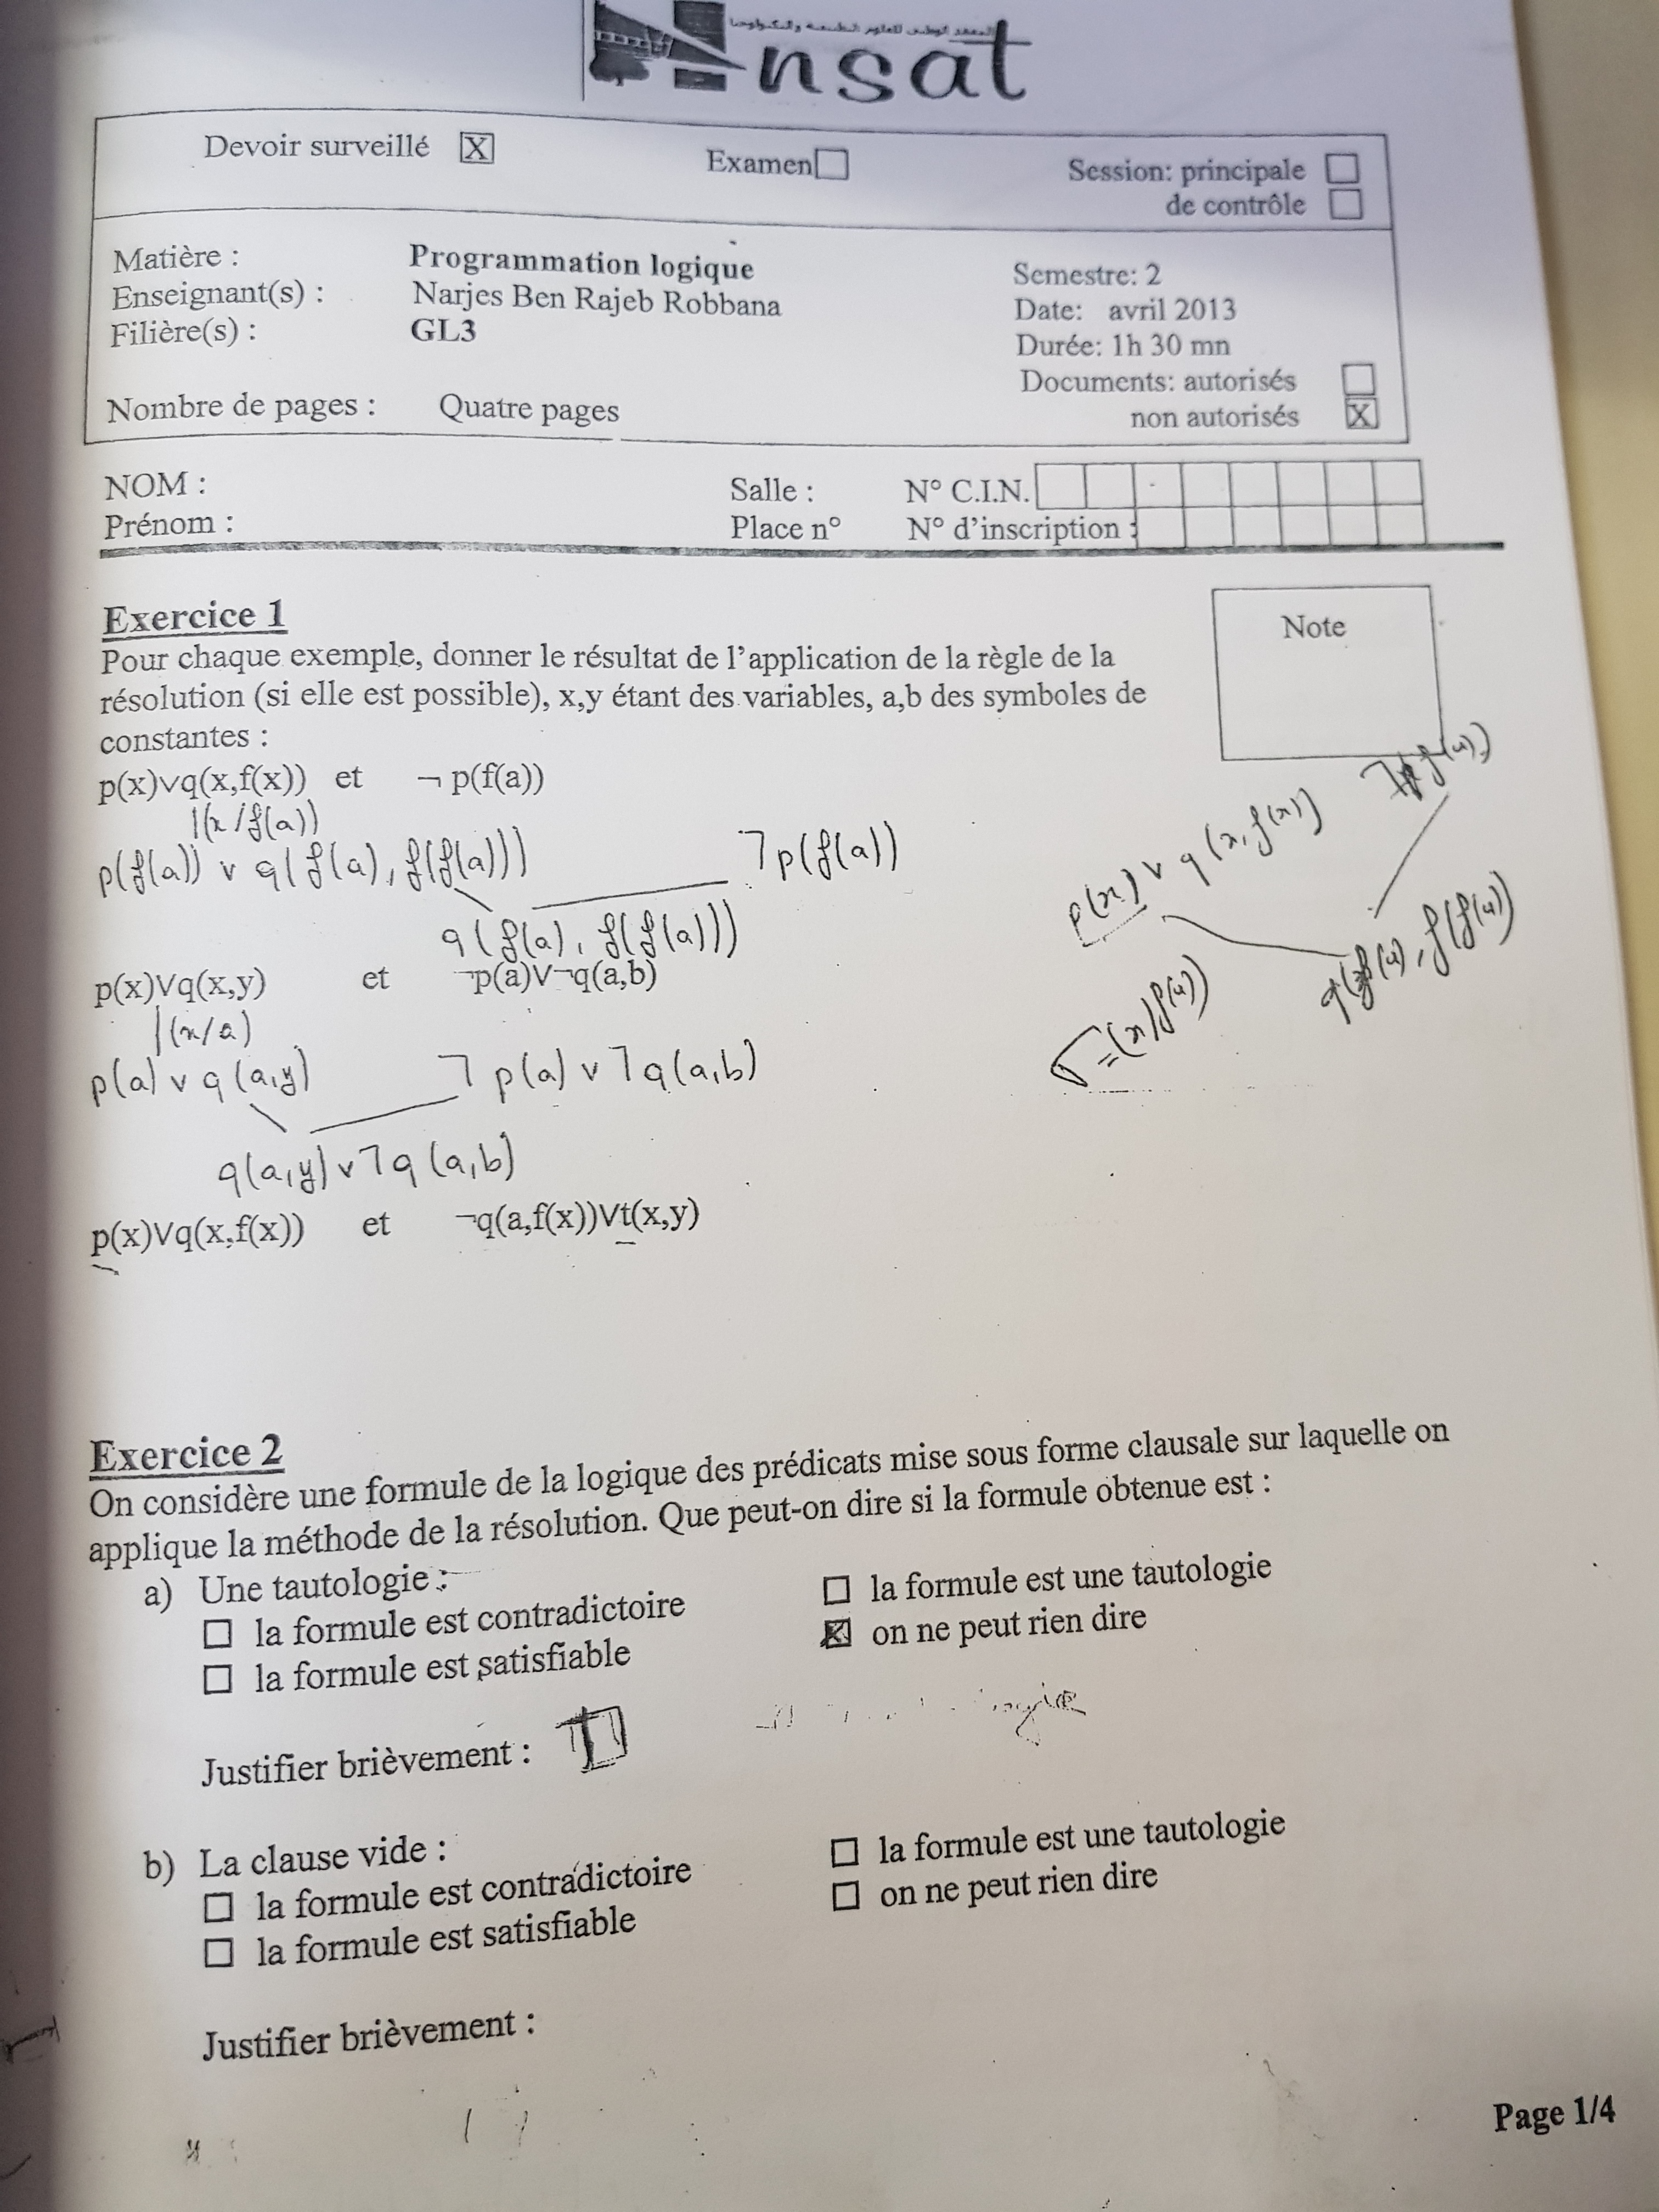 المعهد الوطني للعلوم التطبيقية و التكنولوجيا
insat
Devoir surveillé X Examen Session: principale
de contrôle
Matière : Programmation logique Semestre: 2
Enseignant(s) : Narjes Ben Rajeb Robbana Date: avril 2013
Filière(s) : GL3 Durée: 1h 30 mn
Documents: autorisés
Nombre de pages : Quatre pages non autorisés X
NOM : Salle : N° C.I.N.
Prénom : Place n° N° d'inscription :
Exercice 1
Note
Pour chaque exemple, donner le résultat de l'application de la règle de la
résolution (si elle est possible), x,y étant des variables, a,b des symboles de
constantes :
p(x)∨q(x,f(x)) et ¬ p(f(a))
|(x/f(a))
p(f(a)) ∨ q(f(a), f(f(a))) ¬p(f(a))
q(f(a), f(f(a)))
p(x) ∨ q(x, f(x))
q(f(a), f(f(a))
σ=(x/f(a))
p(x)∨q(x,y) et ¬p(a)∨¬q(a,b)
|(x/a)
p(a) ∨ q(a,y) ¬p(a) ∨ ¬q(a,b)
q(a,y) ∨ ¬q(a,b)
p(x)∨q(x,f(x)) et ¬q(a,f(x))∨t(x,y)
Exercice 2
On considère une formule de la logique des prédicats mise sous forme clausale sur laquelle on
applique la méthode de la résolution. Que peut-on dire si la formule obtenue est :
a) Une tautologie :
la formule est contradictoire la formule est une tautologie
la formule est satisfiable X on ne peut rien dire
Justifier brièvement :
b) La clause vide :
la formule est contradictoire la formule est une tautologie
la formule est satisfiable on ne peut rien dire
Justifier brièvement :
Page 1/4